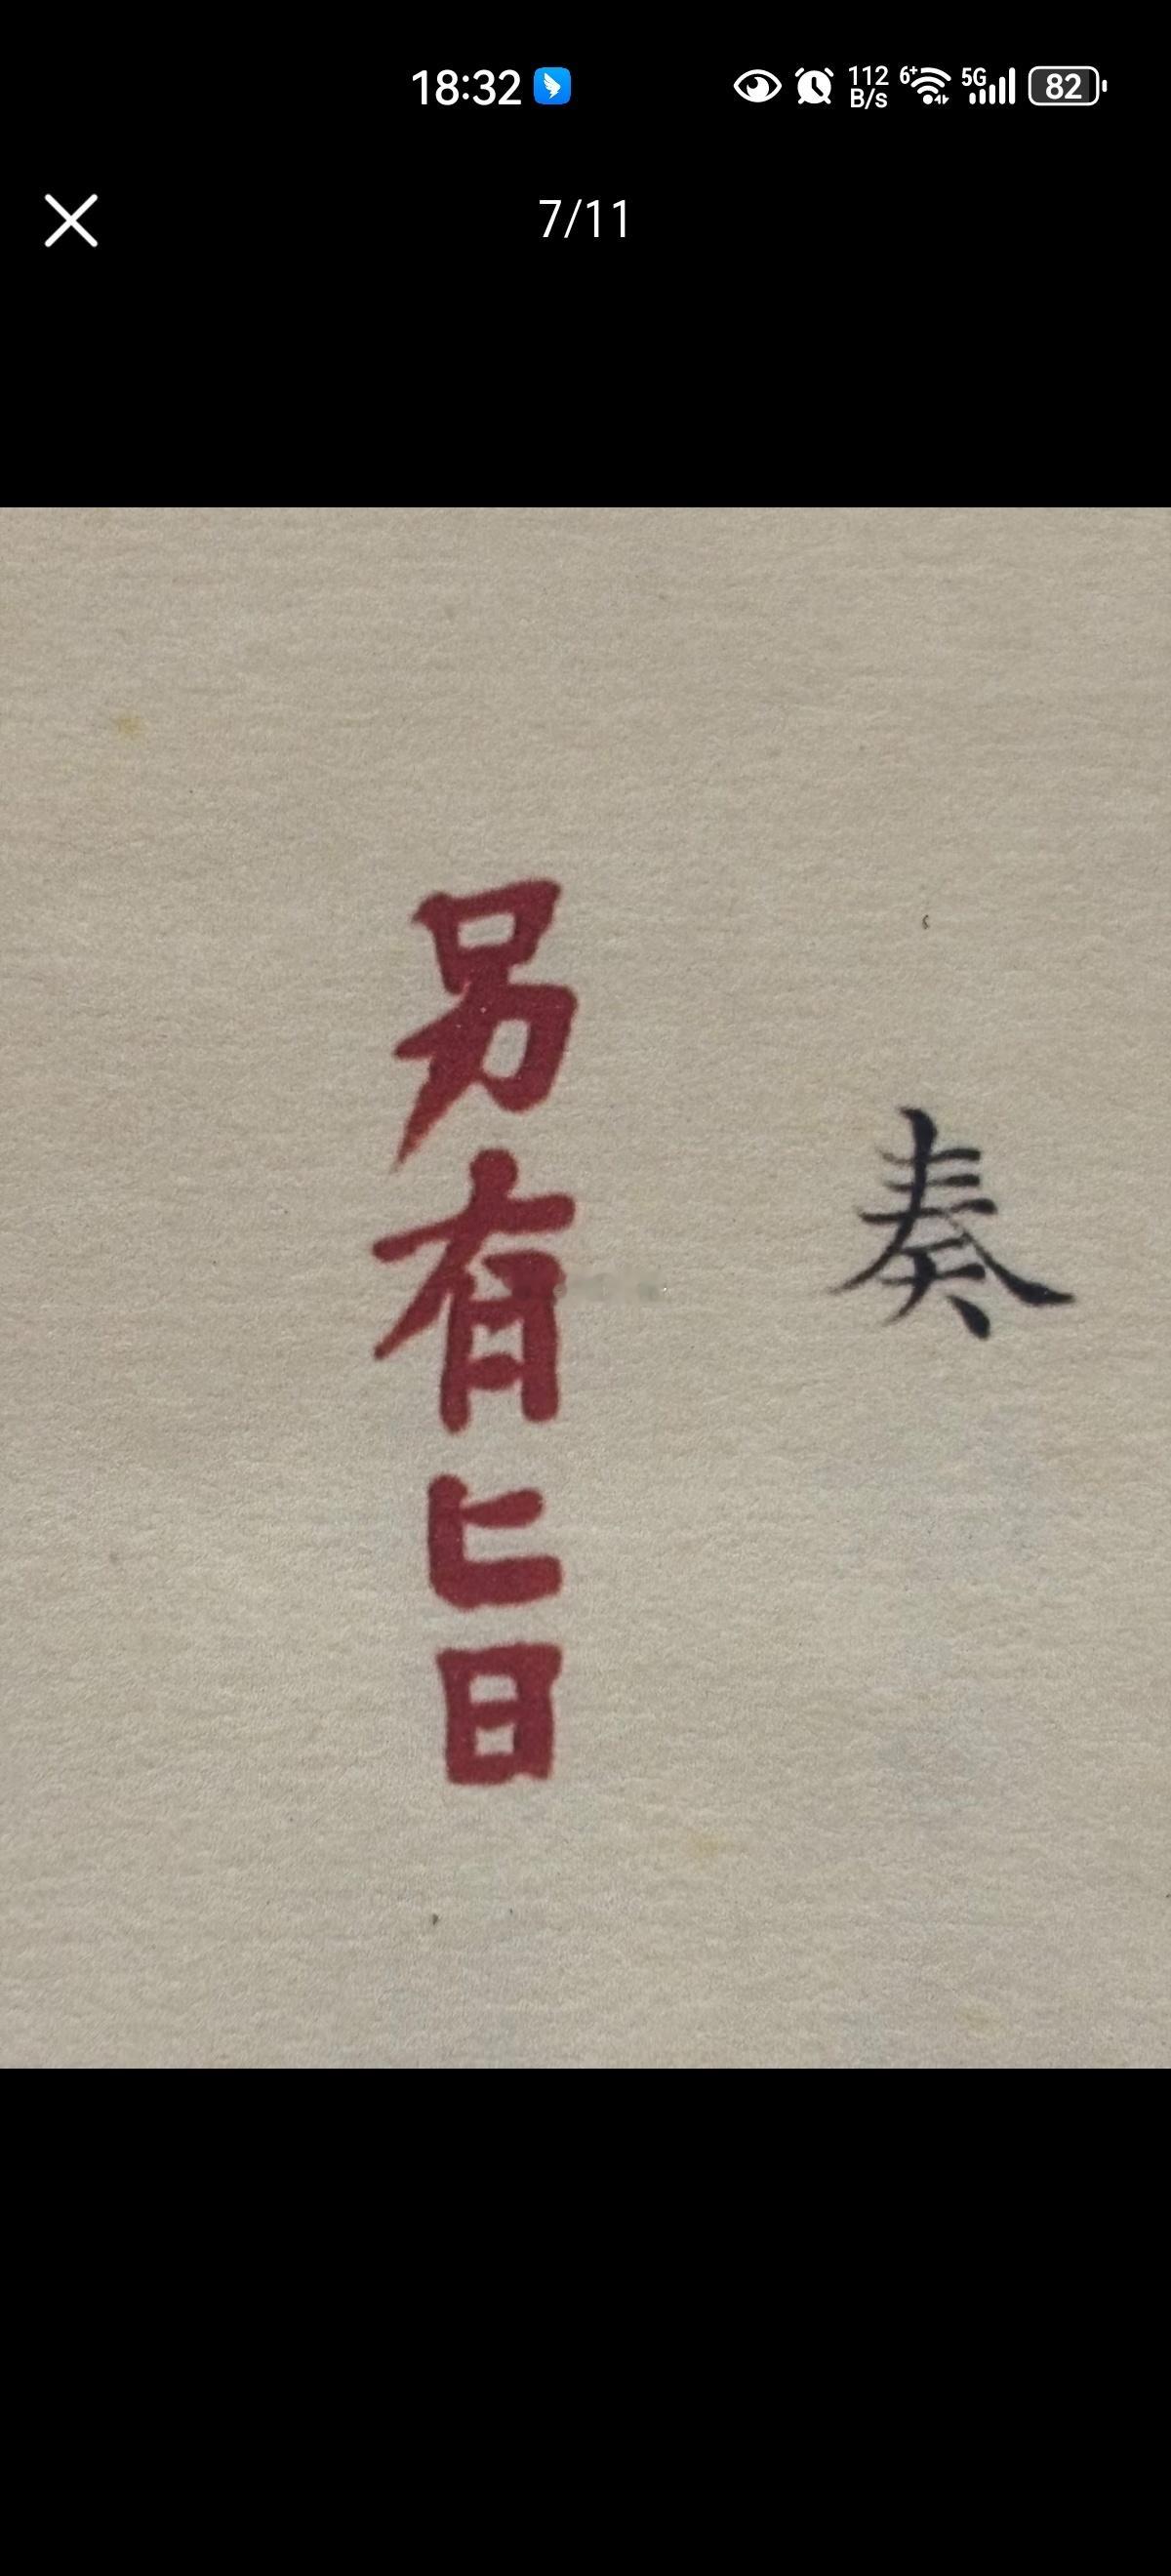 18:32
112 B/s
6+
5G
82
7/11
奏
另有旨